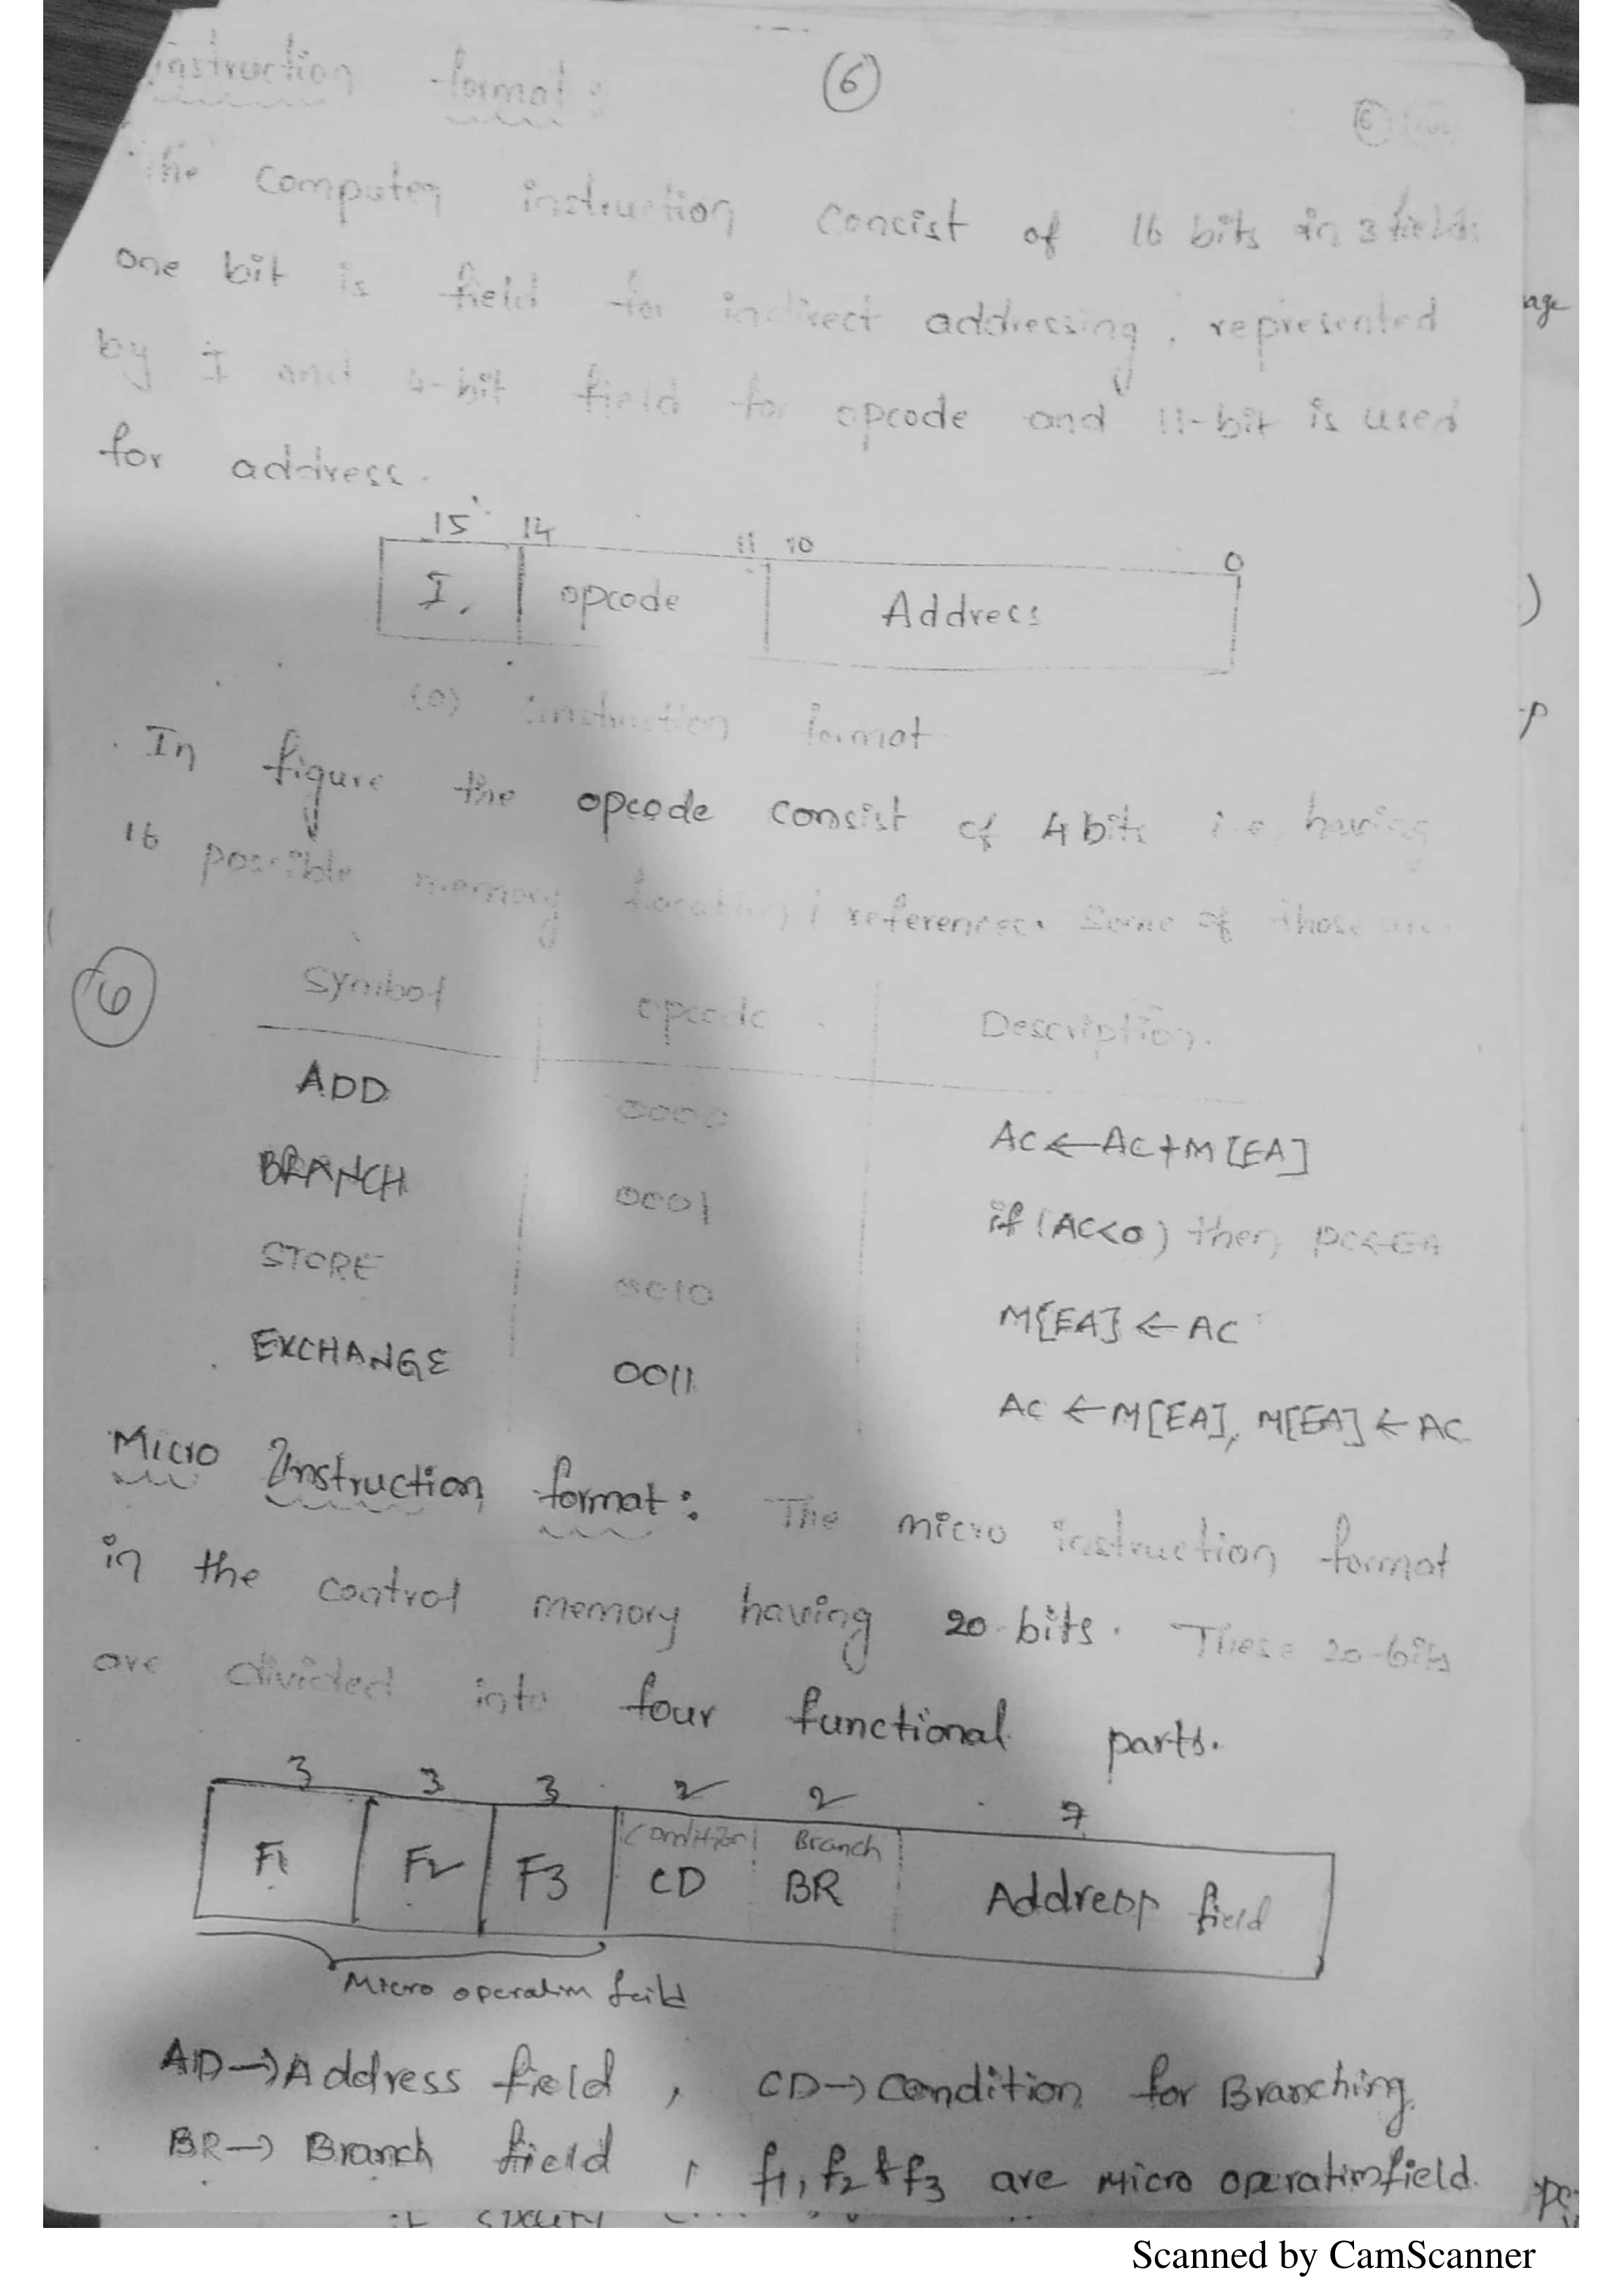 6
instruction format :
6
The computer instruction concist of 16 bits in 3 fields
one bit is field for indirect addressing, represented
age
by I and 4-bit field for opcode and 11-bit is used
for address.
15 14 11 10 0
I. opcode Address
)
(a) instruction format
p
In figure the opcode consist of 4 bits i.e, having
16 possible memory references. Some of those are
6
Symbol opcode Description.
ADD 0000 AC ← AC + M [EA]
BRANCH 0001 if (AC<0) then PC←EA
STORE 0010 M[EA] ← AC
EXCHANGE 0011 AC ← M[EA], M[EA] ← AC
Micro Instruction format : The micro instruction format
in the control memory having 20 bits. These 20-bits
are divided into four functional parts.
3 3 3 2 2 7
Condition Branch
F1 F2 F3 CD BR Address field
Micro operation feild
AD → Address field , CD → Condition for Branching.
BR → Branch field , f1, f2 & f3 are Micro operation field.
Scanned by CamScanner